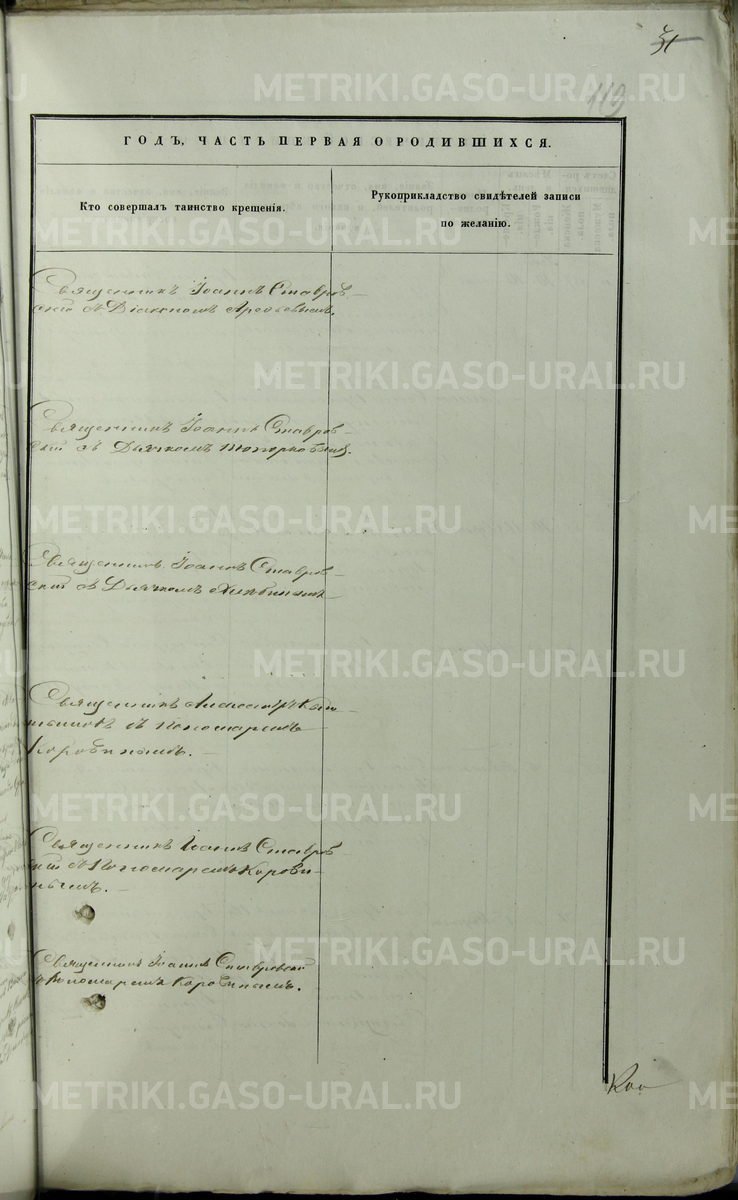 31
119
ГОДЪ, ЧАСТЬ ПЕРВАЯ О РОДИВШИХСЯ.
Кто совершалъ таинство крещенія.
Рукоприкладство свидѣтелей записи
по желанію.
Священникъ Іоаннъ Ставров-
скій съ Діакономъ Арефьевымъ.
Священникъ Іоаннъ Ставров-
скій съ Дьячкомъ Топорковымъ.
Священникъ Іоаннъ Ставров-
скій съ Дьячкомъ
Священникъ Александръ
съ Пономаремъ
Коровинымъ.
Священникъ Іоаннъ Ставров-
скій съ Пономаремъ Корови-
нымъ.
Священникъ Іоаннъ Ставровскій
съ Пономаремъ Коровинымъ.
METRIKI.GASO-URAL.RU